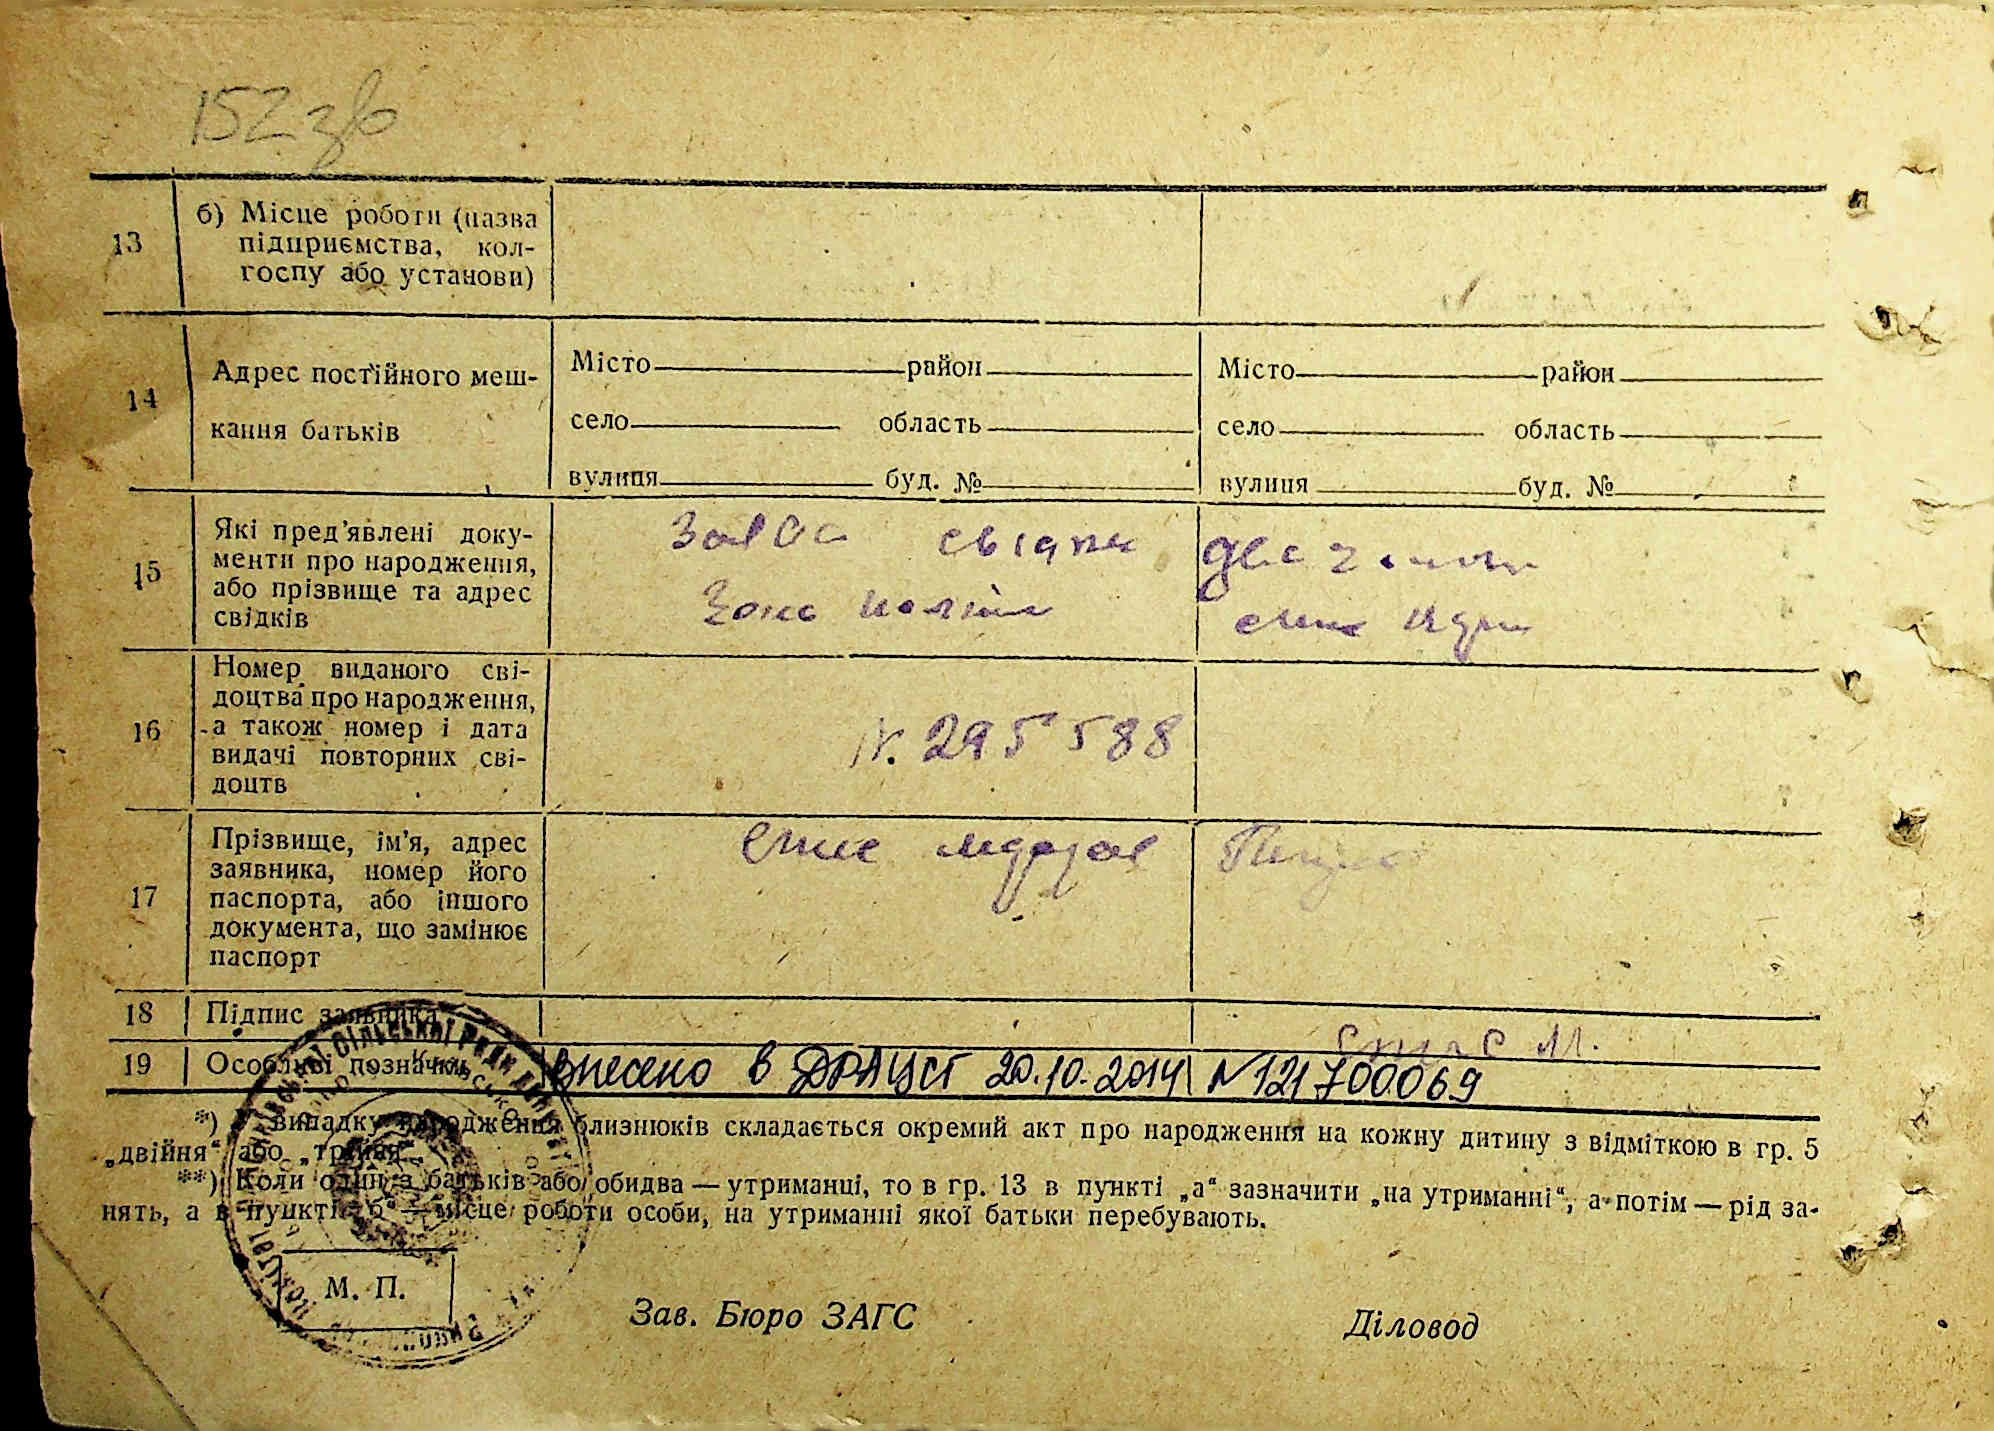 152 зв
13
б) Місце роботи (назва
підприємства, кол-
госпу або установи)
14
Адрес постійного меш-
кання батьків
Місто район
село область
вулиця буд. №
Місто район
село область
вулиця буд. №
15
Які пред'явлені доку-
менти про народження,
або прізвище та адрес
свідків
16
Номер виданого сві-
доцтва про народження,
а також номер і дата
видачі повторних сві-
доцтв
N. 295588
17
Прізвище, ім'я, адрес
заявника, номер його
паспорта, або іншого
документа, що замінює
паспорт
18
Підпис заявника
19
Особливі позначки
внесено в ДРАЦСГ 20.10.2014 N 121700069
*) У випадку народження близнюків складається окремий акт про народження на кожну дитину з відміткою в гр. 5
„двійня“ або „трійня“.
**) Коли один з батьків або обидва — утриманці, то в гр. 13 в пункті „а“ зазначити „на утриманні“, а потім — рід за-
нять, а в пункті „б“ — місце роботи особи, на утриманні якої батьки перебувають.
М. П.
Зав. Бюро ЗАГС
Діловод